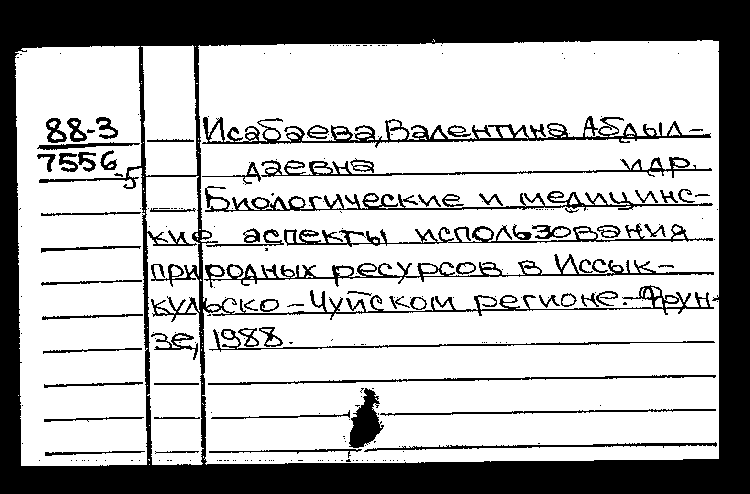 88-3
7556-5
Исабаева, Валентина Абдыл-
даевна и др.
Биологические и медицинс-
кие аспекты использования
природных ресурсов в Иссык-
кульско-Чуйском регионе.-Фрун-
зе, 1988.